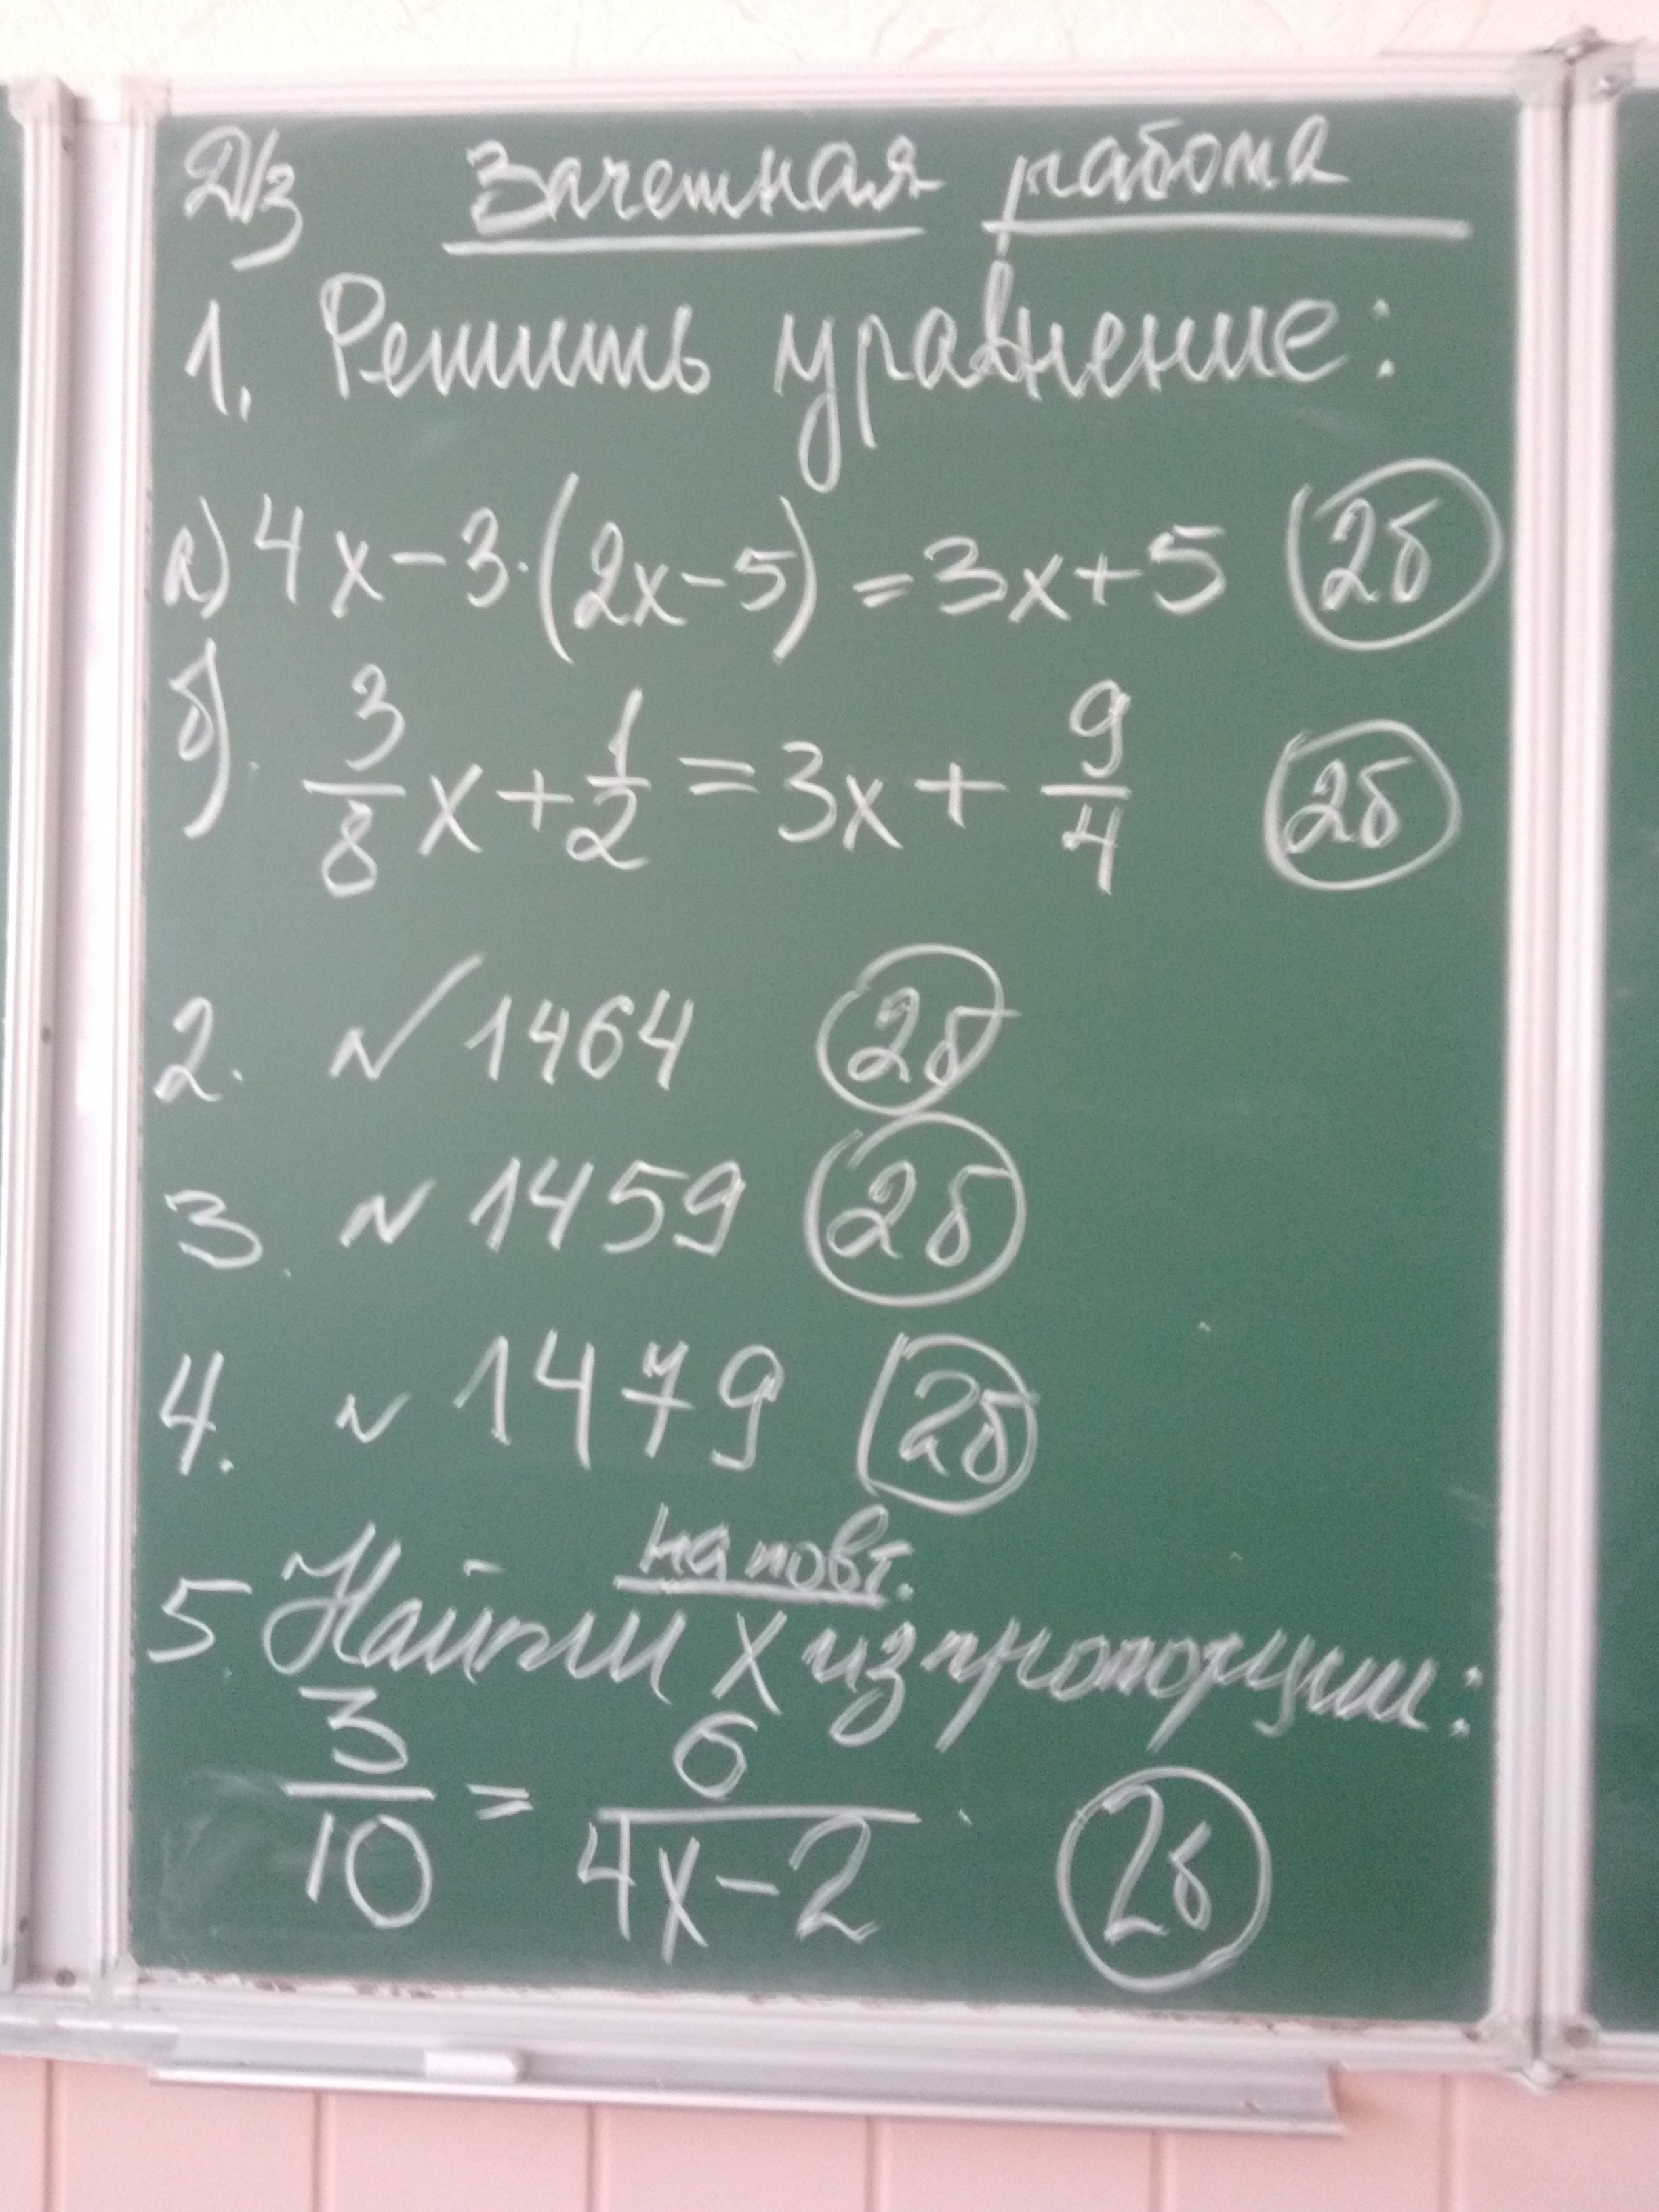 Д/з Зачетная работа
1. Решить уравнение:
а) 4x-3·(2x-5)=3x+5 2б
б) 3/8 x + 1/2 = 3x + 9/4 2б
2. N 1464 2б
3. N 1459 2б
4. N 1479 2б
на повт.
5. Найти x из пропорции:
3/10 = 6/(4x-2) 2б